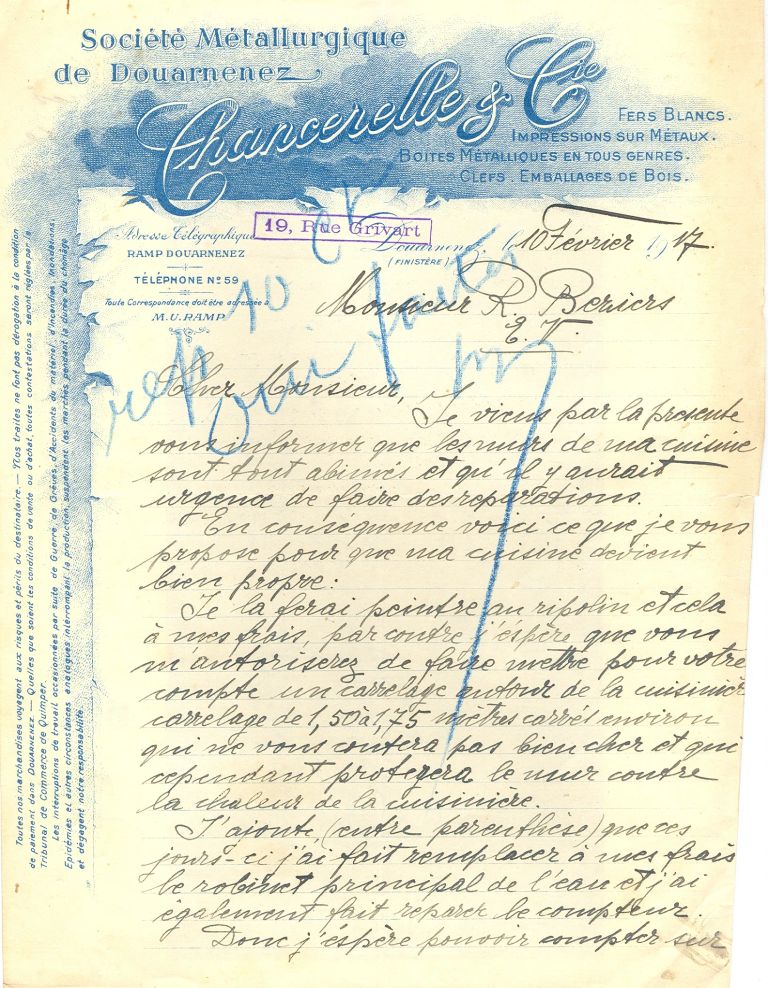 Société Métallurgique
de Douarnenez
Chancerelle & Cie
FERS BLANCS.
IMPRESSIONS SUR MÉTAUX.
BOITES MÉTALLIQUES EN TOUS GENRES.
CLEFS. EMBALLAGES DE BOIS.
19, Rue Grivart
Adresse Télégraphique
RAMP DOUARNENEZ
TÉLÉPHONE No 59
Toute Correspondance doit être adressée à
M.U.RAMP
Douarnenez, le 10 Février 1917.
(FINISTÈRE)
Monsieur R. Beziers
E. V.
rep 10
oui
Cher Monsieur,
Je viens par la presente
vous informer que les murs de ma cuisine
sont tout abimés et qu'il y aurait
urgence de faire des reparations.
En consequence voici ce que je vous
propose pour que ma cuisine devient
bien propre:
Je la ferai peintre au ripolin et cela
à mes frais, par contre j'éspère que vous
m'autoriserez de faire mettre pour votre
compte un carrelage autour de la cuisinière
carrelage de 1,50 à 1,75 mètres carrés environ
qui ne vous coutera pas bien cher et qui
cependant protegera le mur contre
la chaleur de la cuisinière.
J'ajoute, (entre parenthèse) que ces
jours-ci j'ai fait remplacer à mes frais
le robinet principal de l'eau et j'ai
également fait reparer le compteur.
Donc j'éspère pouvoir compter sur
Toutes nos marchandises voyagent aux risques et périls du destinataire. — Nos traites ne font pas dérogation à la condition
de paiement dans DOUARNENEZ. — Quelles que soient les conditions de vente ou d'achat, toutes contestations seront réglées par le
Tribunal de Commerce de Quimper.
Les interruptions de travail occasionnées par suite de Guerre, de Grèves, d'Accidents du matériel, d'Incendies, Inondations,
Epidémies et autres circonstances analogues interrompant la production, suspendent les marchés pendant la durée du chômage
et dégagent notre responsabilité.